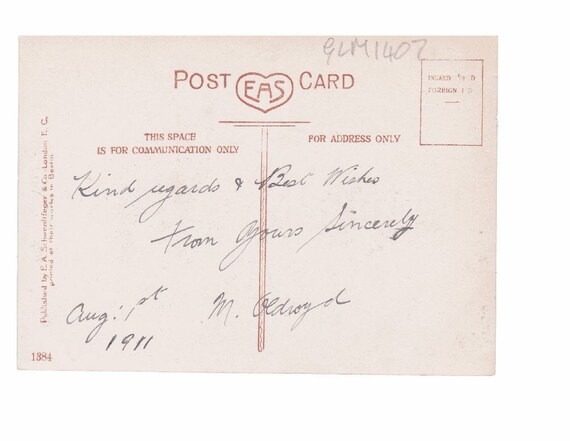 GLM1407
POST EAS CARD
INLAND ½ D
FOREIGN 1 D.
THIS SPACE
IS FOR COMMUNICATION ONLY
FOR ADDRESS ONLY
Kind regards & Best Wishes
From Yours Sincerely
Aug: 1st M. Oldroyd
1911
Published by E. A. Schwerdtfeger & Co. London E. C.
printed at their works in Berlin
1384